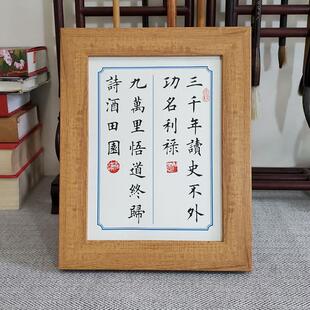 三千年讀史不外
功名利祿
九萬里悟道終歸
詩酒田園